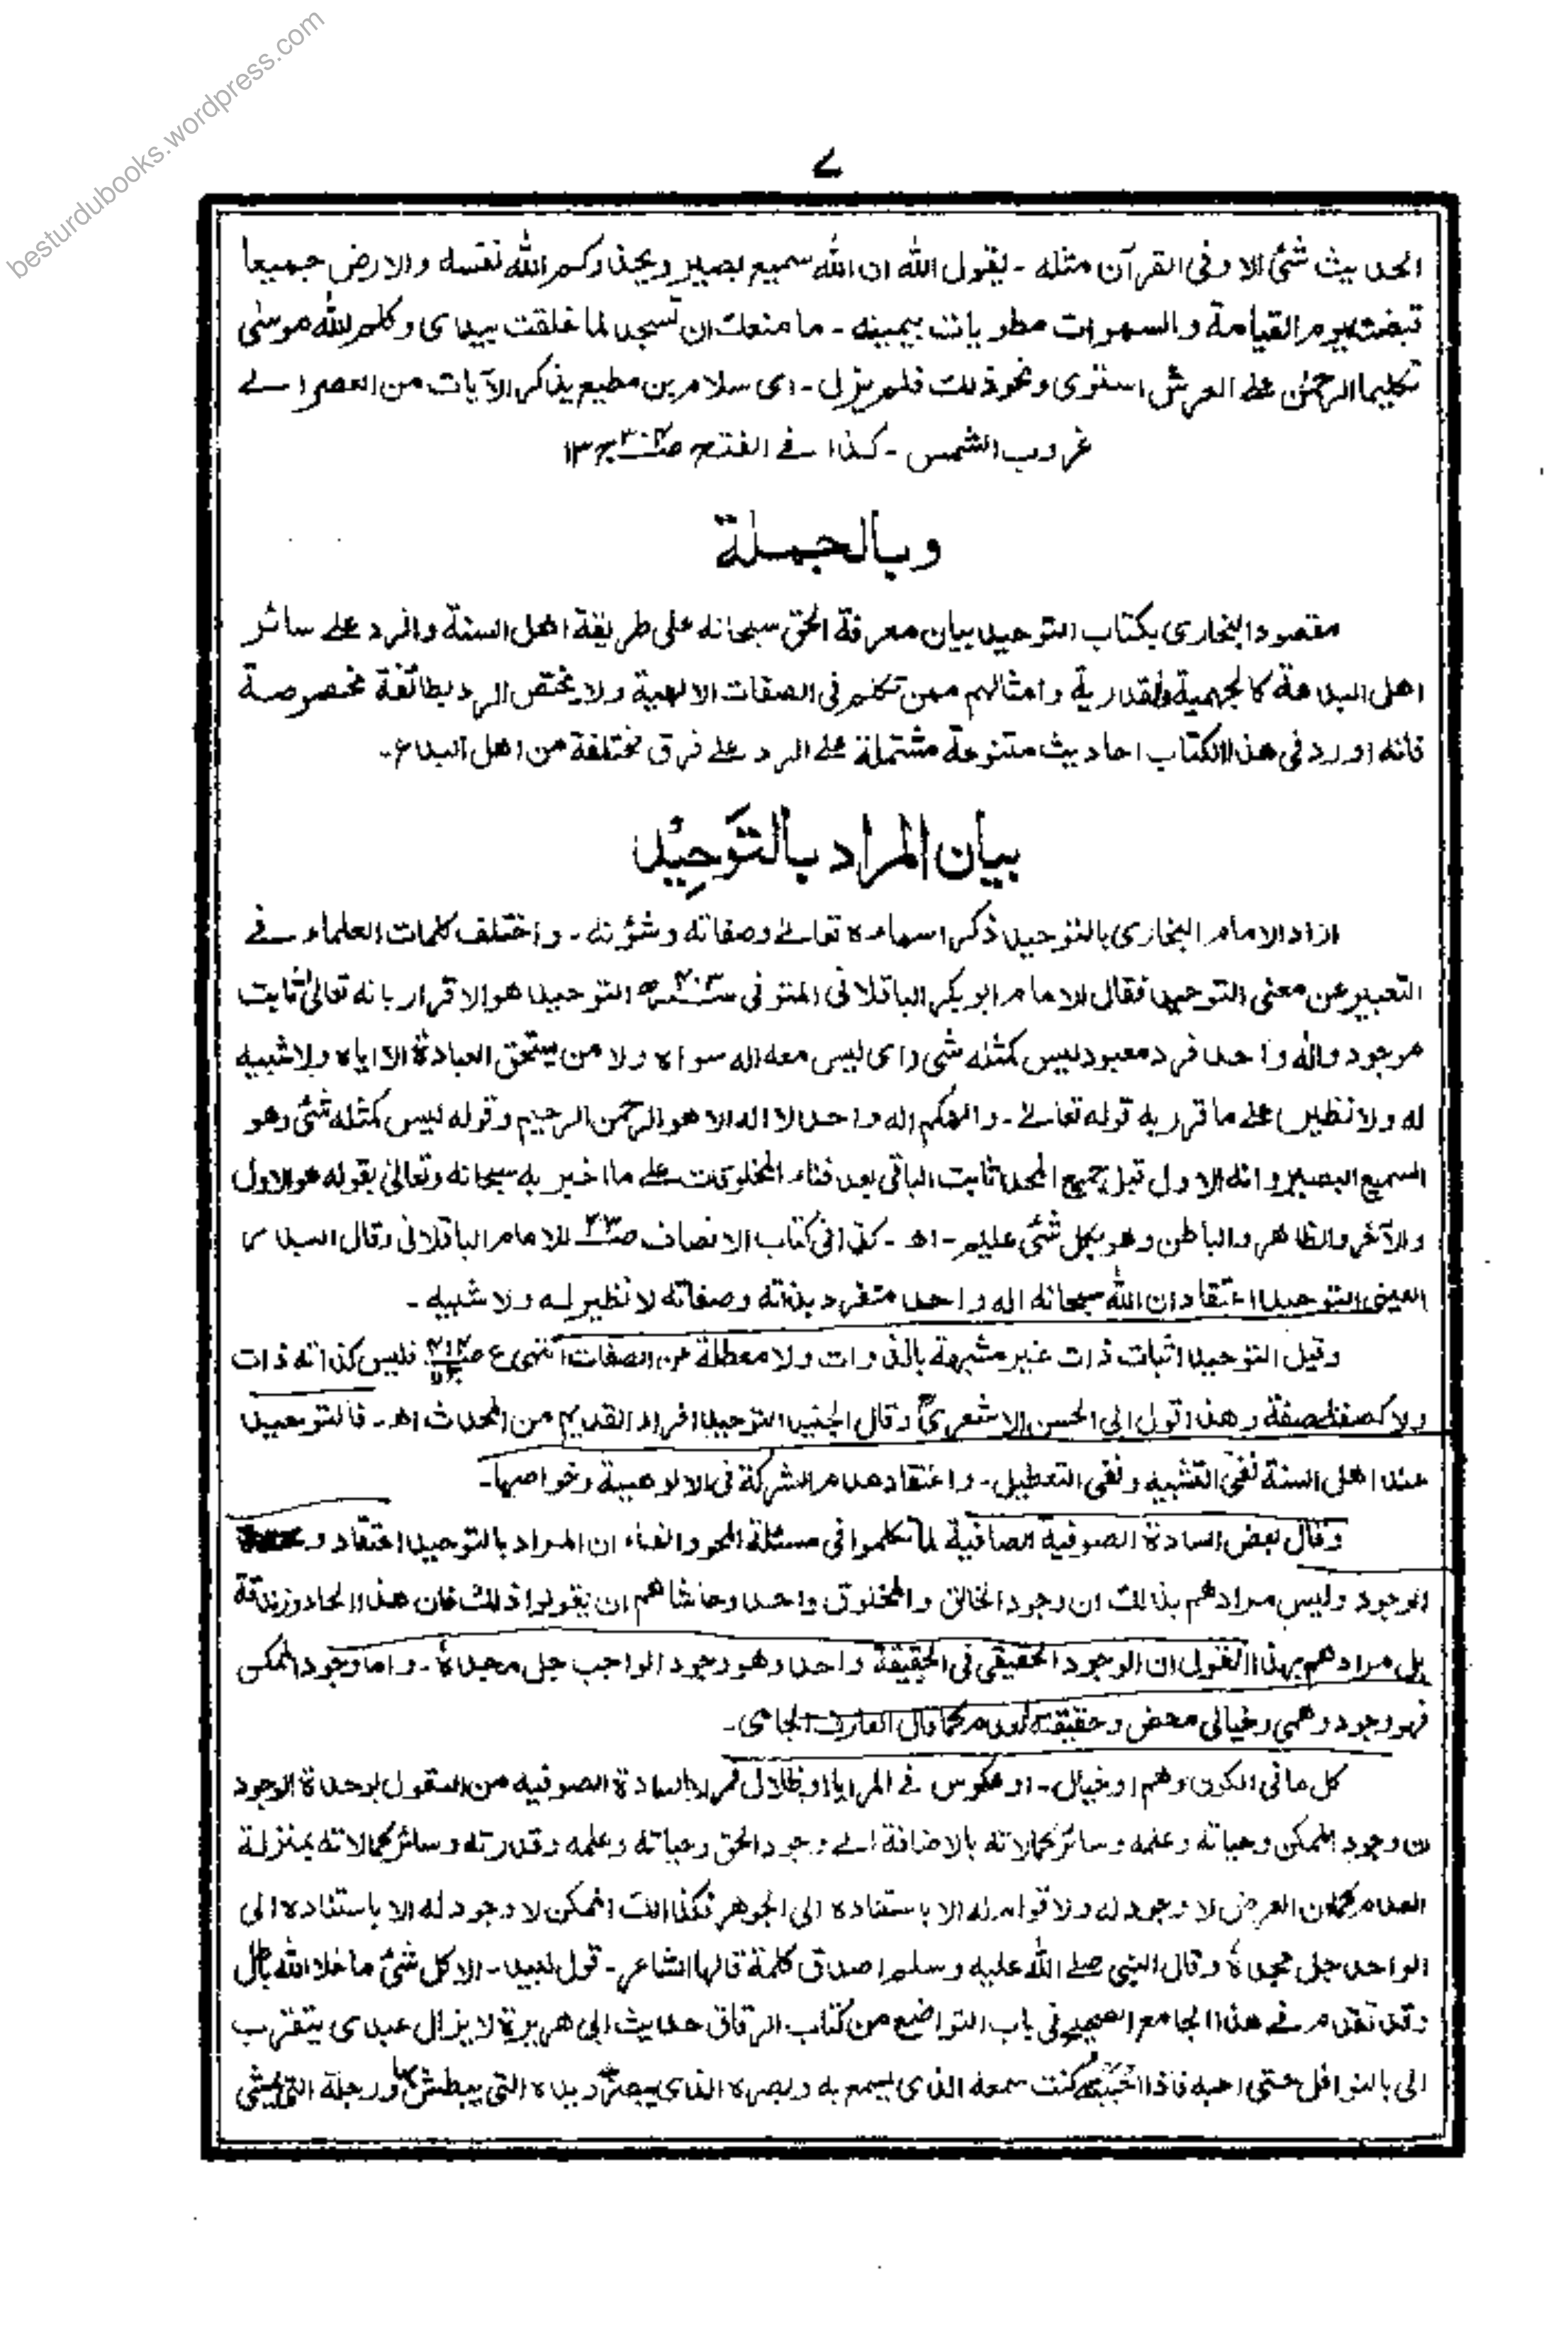 besturdubooks.wordpress.com
٧
الحديث شئ الا وفى القرآن مثله - يقول الله ان الله سميع بصير ويحذركم الله نفسه والارض جميعا
قبضته يوم القيامة والسموات مطويات بيمينه - ما منعك ان تسجد لما خلقت بيدى وكلم الله موسى
تكليما الرحمن على العرش استوى ونحو ذلك فلم يزل - اى سلام بن مطيع يذكر الآيات من العصر الى
غروب الشمس - كذا فى الفتح
وبالجملة
مقصود البخارى بكتاب التوحيد بيان معرفة الحق سبحانه على طريقة اهل السنة والرد على سائر
اهل البدعة كالجهمية والقدرية وامثالهم ممن تكلم فى الصفات الالهية ولا يختص الرد بطائفة مخصوصة
فانه اورد فى هذا الكتاب احاديث متنوعة مشتملة على الرد على فرق مختلفة من اهل البدع -
بيان المراد بالتَوحِيْد
اراد الامام البخارى بالتوحيد ذكر اسماءه تعالى وصفاته وشؤنه - واختلف كلمات العلماء فى
التعبير عن معنى التوحيد فقال الامام ابو بكر الباقلانى المتوفى سنة ٤٠٣ھ التوحيد هو الاقرار بانه تعالى ثابت
موجود واله واحد فرد معبود ليس كمثله شى (اى ليس معه اله سواه ولا من يستحق العبادة الا اياه ولا شبيه
له ولا نظير) على ما قرر به قوله تعالى - والهكم اله واحد لا اله الا هو الرحمن الرحيم وقوله ليس كمثله شئ وهو
السميع البصير وانه الاول قبل جميع المحدثات الباقى بعد فناء المخلوقات على ما اخبر به سبحانه وتعالى بقوله هو الاول
والآخر والظاهر والباطن وهو بكل شئ عليم - اھ - كذا فى كتاب الانصاف صـ٢٣ للامام الباقلانى وقال البدر
العينى التوحيد اعتقاد ان الله سبحانه اله واحد متفرد بذاته وصفاته لا نظير له ولا شبيه -
وقيل التوحيد اثبات ذات غير مشبهة بالذوات ولا معطلة عن الصفات انتهى ع فليس كذاته ذات
ولا كصفته صفة وهذا قول ابى الحسن الاشعرى وقال الجنيد التوحيد افراد القديم من المحدث اھ - فالتوحيد
عند اهل السنة نفى التشبيه ونفى التعطيل - واعتقاد عدم الشركة فى الالوهية وخواصها -
وقال بعض السادة الصوفية الصافية لما تكلموا فى مسئلة المحو والفناء ان المراد بالتوحيد اعتقاد وحدة
الوجود وليس مرادهم بذلك ان وجود الخالق والمخلوق واحد وحاشا هم ان يقولوا ذلك فان هذا الحاد وزندقة
بل مرادهم بهذا القول ان الوجود الحقيقى فى الحقيقة واحد وهو وجود الواجب جل مجده - واما وجود الممكن
فهو وجود وهمى وخيالى محض وحقيقته العدم كما قال العارف الجامى -
كل ما فى الكون وهم او خيال - او عكوس فى المرايا او ظلال فمراد السادة الصوفيه من القول بوحدة الوجود
ان وجود الممكن وحياته وعلمه وسائر كمالاته بالاضافة الى وجود الحق وحياته وعلمه وقدرته وسائر كمالاته بمنزلة
العدم كما ان العرض لا وجود له ولا قوام له الا باستناده الى الجوهر فكذالك الممكن لا وجود له الا باستناده الى
الواحد جل مجده وقال النبى صلى الله عليه وسلم اصدق كلمة قالها الشاعر - قول لبيد - الا كل شئ ما خلا الله باطل
وقد تقدم فى هذا الجامع الصحيح فى باب التواضع من كتاب الرقاق حديث ابى هريرة لا يزال عبدى يتقرب
الى بالنوافل حتى احبه فاذا احببته كنت سمعه الذى يسمع به وبصره الذى يبصر به ويده التى يبطش بها ورجله التى يمشى